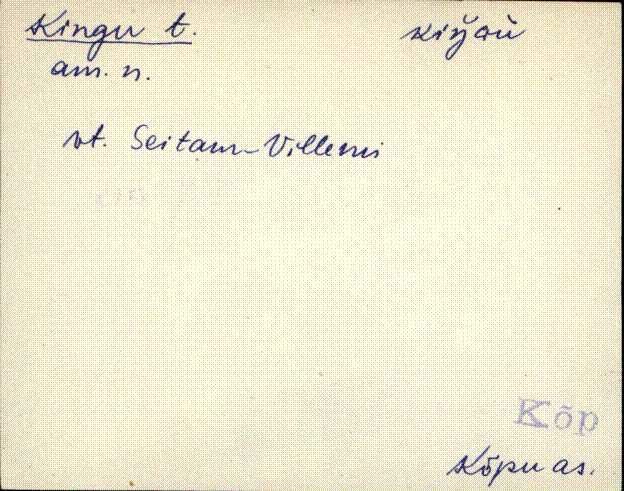 Kingu t.
am. n.
vt. Seitam-Villemi
Kõp
Kõpu as.